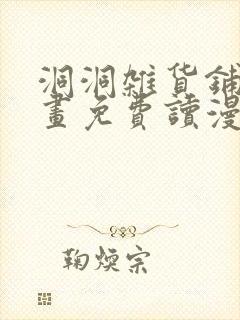 洞洞雜货鋪
畫免費讀漫
鞠煐宗